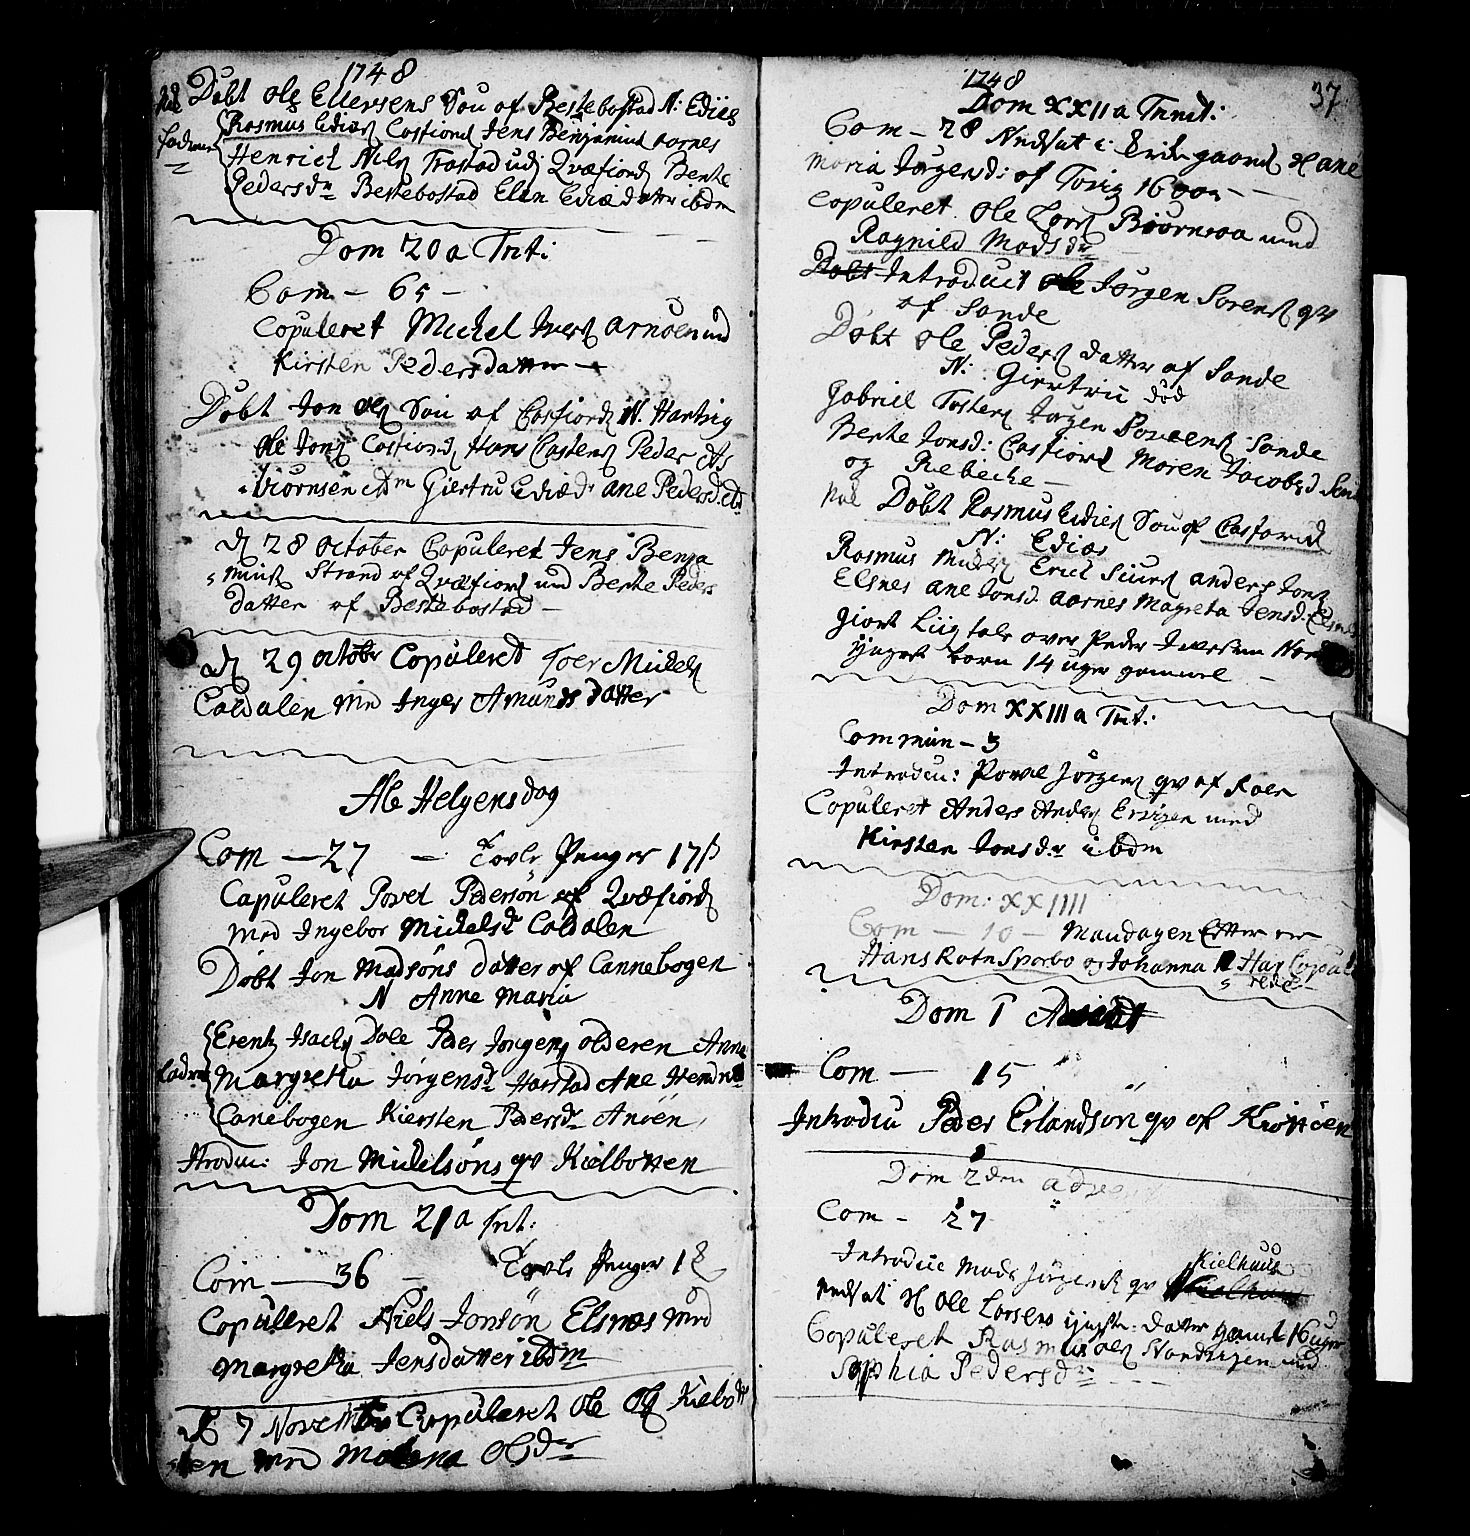 1748
Døbt Ole Ellersens Søn af Bestebostad N: Edies
Rasmus Edies Casfiord Jens Benjamins Aarnes
fadrene Henrich Nils Trastad udi Qvæfiord Berte
Peders dr Bestebostad Elen Ediæ datter ibdm
Dom 20 a Trit:
Com - 65 -
Copuleret Michel Ivers Arnøen med
Kirsten Pedersdatter
Døbt Jon Ols Søn af Casfiord N. Hartvig
Ole Jons Casfiord Hans Castens Peder
Biørnsen ibdm Giertru Ediæ dr Ane Pedersd. ibd
D 28 October Copuleret Jens Benja
mins Strand af Qvæfiord med Berte Peders
datter af Bestebostad -
D 29 October Copuleret Michels
Caldalen med Inger Amunds datter
Ale Helgens dag
Com - 27 - Tavle Penger 17 ß
Capuleret Povel Pedersøn af Qvæfiord
med Ingebor Michelsd Caldalen
Døbt Jon Madsøns datter af Cannebogen
N Anne Maria
Erentz Isachs Dale Peder Jørgens olderen Anna
fadrene Margretha Jørgensd Harstad Ane Hendr
Canebogen Kiersten Pedersdr Anøen
Introduc: Jon Michelsøns qv Kielbotten
Dom 21 a Trit:
Com - 36 - Tavle Penger 18
Copuleret Niels Jonsøn Elsnes med
Margretha Jensdatter ibdm
D 7 November Copuleret Ole Ols Kielbot
ten med Malena Olsdr
1748
37
Dom XXII a Trinit:
Com - 28 Nedsat i Erdegaard Ane
Maria Jørgensd: af 16
Copuleret Ole Lars Biørnraa med
Ragnild Mads dr
Døbt Introducit Ole Jørgen Sørens qv
af Sande
Døbt Ole Peders datter af Sande
N: Giertru død
Gabriel Tosters Jørgen Sørens Sande
Berte Jonsd: Casfiord Maren Jacobsd Sand
og Rebeche -
Døbt Rasmus Edies Søn af Casfiord
N: Edias
Rasmus Michels Erich Siurs Anders Jons
Elsnes Ane Jonsd. Aarnes Magreta Jensd. Elsnes
giort Liigtale over Peder Iversen
yngst barn 14 uger gammel -
Dom XXIII a Trit:
Commun - 3
Introduc: Povel Jørgens qv af Roen
Copuleret Anders Anders Ervigen med
Kirsten Jonsdr ibdm
Dom: XXIIII
Com - 10 - Mandagen Efter er
Hans Rotn Sporbo og Johanna Har Copule
rede -
Dom I Advent
Com - 15
Introdu Peder Erlandsøn qv af Kiøtteen
Dom 2den advent
Com - 27
Introduc Mads Jørgens qv Kielhaus
nedsat Ole Larsens yngste: datter gamel 16 uger
Copuleret Rasmus Ols Nordvigen med
Sophia Pedersdr